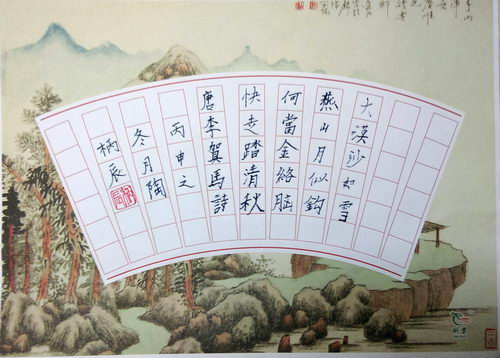 大漠沙如雪
燕山月似鈎
何當金絡腦
快走踏清秋
唐李賀馬詩
丙申之
冬月陶
柄辰